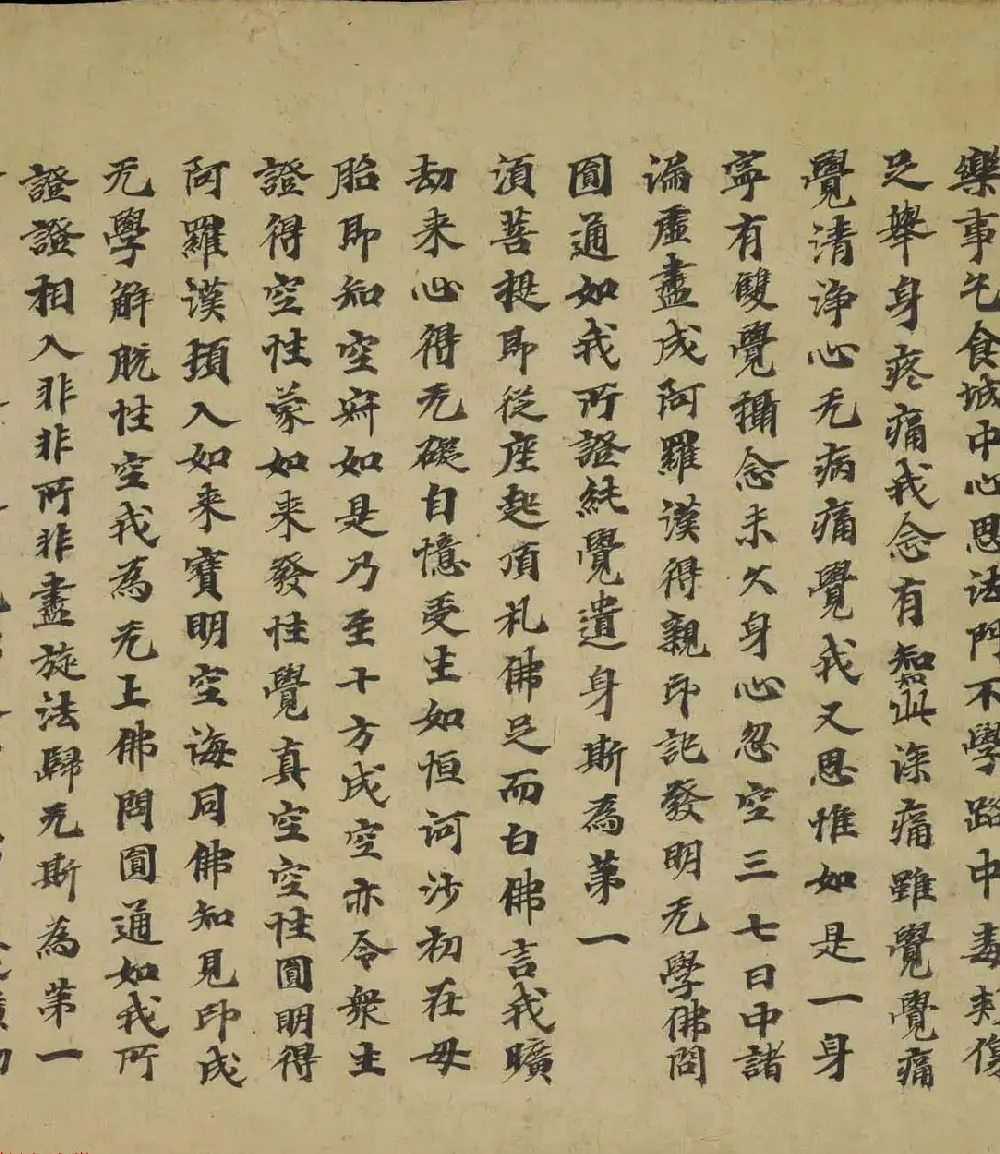 樂事乞食城中心思法門不覺路中毒刺傷
足舉身疼痛我念有知此深痛雖覺覺痛
覺清淨心无病痛覺我又思惟如是一身
寧有雙覺攝念未久身心忽空三七日中諸
漏虛盡成阿羅漢得親印記發明无學佛問
圓通如我所證純覺遺身斯為第一
須菩提即從座起頂礼佛足而白佛言我曠
劫来心得无礙自憶受生如恒河沙初在母
胎即知空寂如是乃至十方成空亦令衆生
證得空性蒙如来發性覺真空空性圓明得
阿羅漢頓入如来寶明空海同佛知見印成
无學解脫性空我為无上佛問圓通如我所
證諸相入非非所非盡旋法歸无斯為第一